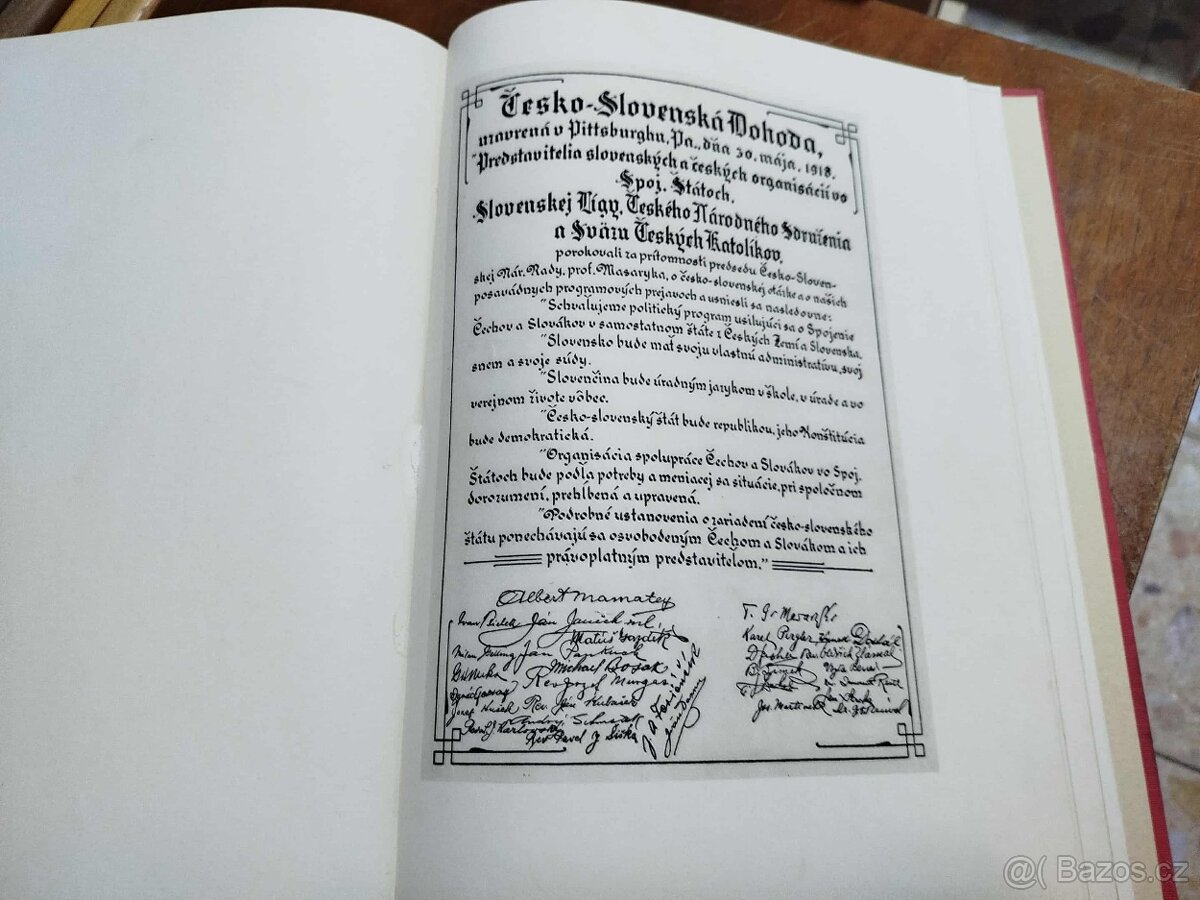 Česko-Slovenská Dohoda,
uzavrená v Pittsburghu, Pa., dňa 30. mája, 1918.
"Predstavitelia slovenských a českých organisácií vo
Spoj. Štátoch,
Slovenskej Ligy, Českého Národného Sdruženia
a Sväzu Českých Katolíkov,
porokovali za prítomnosti predsedu Česko-Sloven-
skej Nár. Rady, prof. Masaryka, o česko-slovenskej otázke a o našich
posavádnych programových prejavoch a usniesli sa nasledovne:
"Schvalujeme politický program usilujúci sa o Spojenie
Čechov a Slovákov v samostatnom štáte z Českých Zemí a Slovenska.
"Slovensko bude mať svoju vlastnú administratívu, svoj
snem a svoje súdy.
"Slovenčina bude úradným jazykom v škole, v úrade a vo
verejnom živote vôbec.
"Česko-slovenský štát bude republikou, jeho Konštitúcia
bude demokratická.
"Organisácia spolupráce Čechov a Slovákov vo Spoj.
Štátoch bude podľa potreby a meniacej sa situácie, pri spoločnom
dorozumení, prehĺbená a upravená.
"Podrobné ustanovenia o zariadení česko-slovenského
štátu ponechávajú sa osvobodeným Čechom a Slovákom a ich
právoplatným predstaviteľom."
Albert Mamatey
Ján Janček ml.
Milan Getting Ján Pankuch
Michael Bosak
Rev. Jozef Murgaš
Jozef Hušek Rev. Ján Kubašek
Andrej Schmidt
Pavel J. Karlovský
Rev. Pavel J. Šiška
T. G. Masaryk
Karel Pergler
Jos. Martinek
@( Bazos.cz